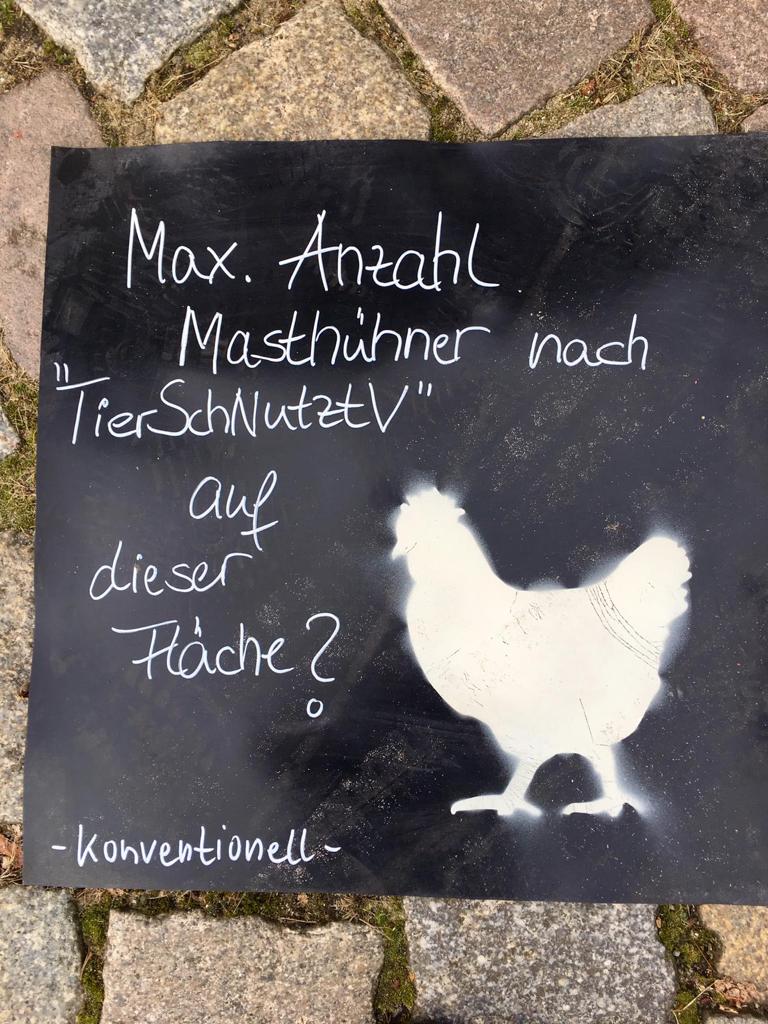 Max. Anzahl
Masthühner nach
"TierSchNutztV"
auf
dieser
Fläche?
-konventionell-